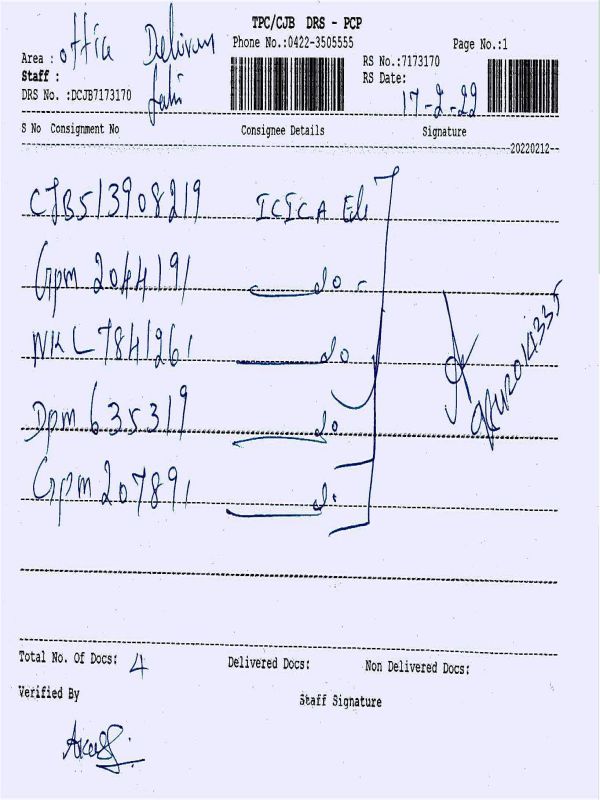 TPC/CJB DRS - PCP
Area : Office Delivery
Phone No.:0422-3505555
Page No.:1
Staff :
RS No.:7173170
RS Date: 17-2-22
DRS No. :DCJB7173170
S No Consignment No Consignee Details Signature
20220212
CJB513908219 ICICA
Gpm 2044191 do
NKL 7841261 do
Dpm 635319 do
Gpm 207891 do
Total No. Of Docs: 4 Delivered Docs: Non Delivered Docs:
Verified By Staff Signature